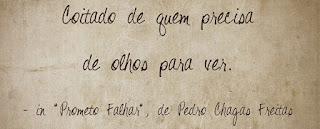 Coitado de quem precisa
de olhos para ver.
- in "Prometo Falhar", de Pedro Chagas Freitas